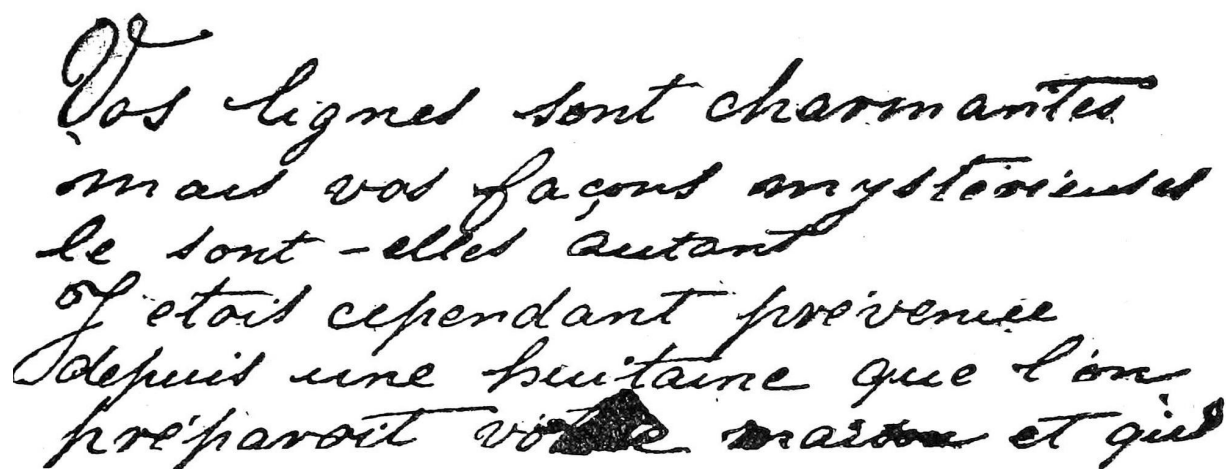 Vos lignes sont charmantes
mais vos façons mystérieuses
le sont-elles autant
J'etois cependant prévenue
depuis une huitaine que l'on
préparoit votre maison et